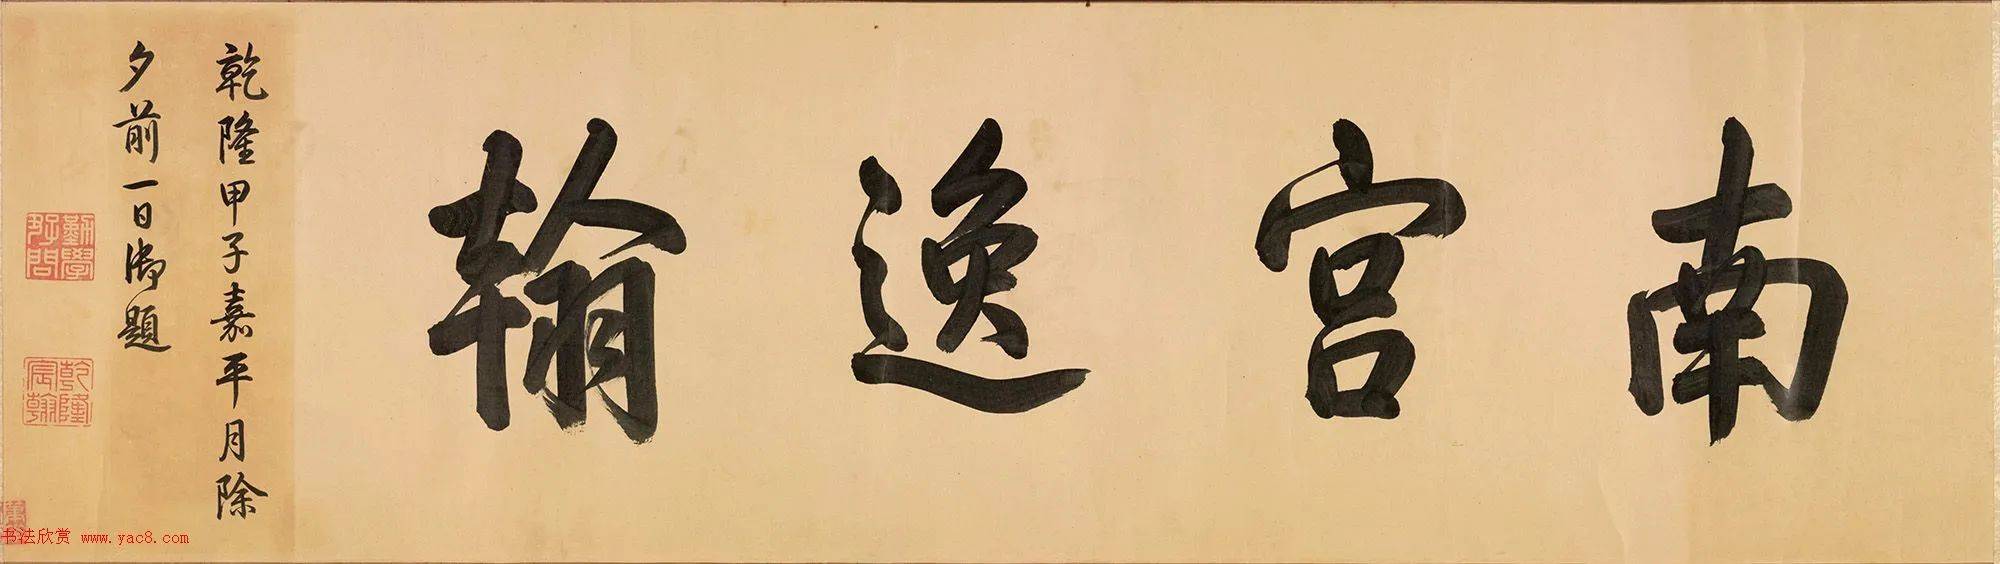 南宫逸翰
乾隆甲子嘉平月除
夕前一日御題
勤學
好問
乾隆
宸翰
书法欣赏 www.yac8.com